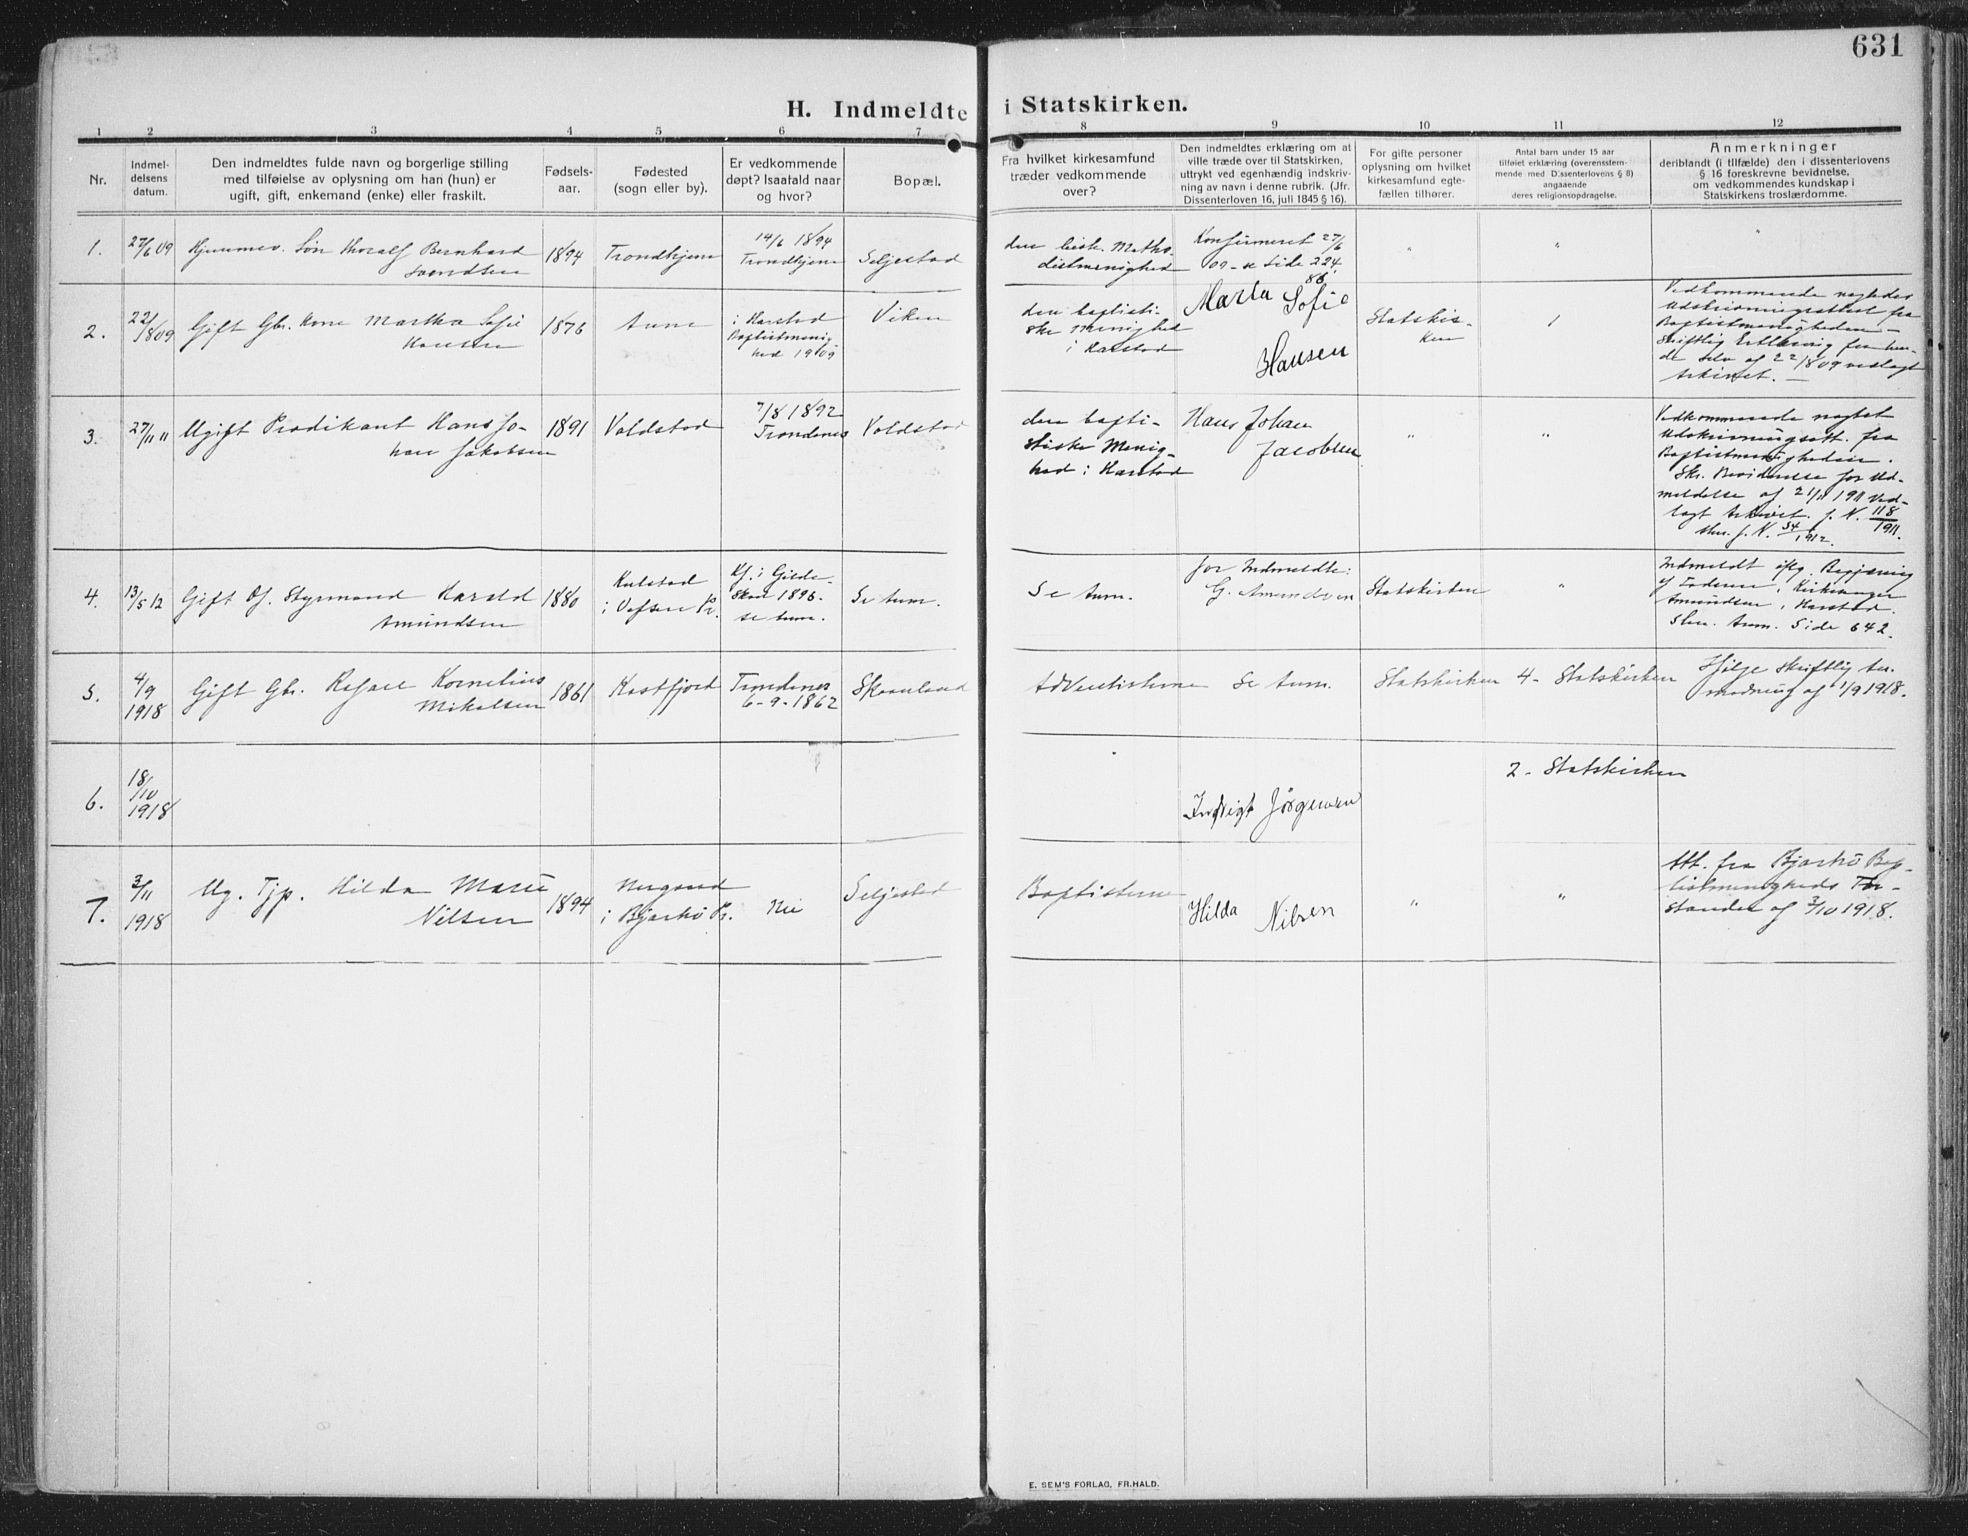 631
H. Indmeldte i Statskirken.
1 2 3 4 5 6 7 8 9 10 11 12
Nr.
Indmel-
delsens
datum.
Den indmeldtes fulde navn og borgerlige stilling
med tilføielse av oplysning om han (hun) er
ugift, gift, enkemand (enke) eller fraskilt.
Fødsels-
aar.
Fødested
(sogn eller by).
Er vedkommende
døpt? Isaafald naar
og hvor?
Bopæl.
Fra hvilket kirkesamfund
træder vedkommende
over?
Den indmeldtes erklæring om at
ville træde over til Statskirken,
uttrykt ved egenhændig indskriv-
ning av navn i denne rubrik. (Jfr.
Dissenterloven 16, juli 1845 § 16).
For gifte personer
oplysning om hvilket
kirkesamfund egte-
fællen tilhører.
Antal barn under 15 aar
tilføiet erklæring (overensstem-
mende med Dissenterlovens § 8)
angaaende
deres religionsopdragelse.
Anmerkninger
deriblandt (i tilfælde) den i dissenterlovens
§ 16 foreskrevne bevidnelse,
om vedkommendes kundskap i
Statskirkens troslærdomme.
1.
27/6 09
Søn Thoralf Bernhard
Svendsen
1894
Trondhjem
14/6 1894
Trondhjem
Seljestad
den bisk. Metho-
distmenighed
Konfirmeret 27/6
09 - se Side 224
86.
"
"
"
2.
22/8 09
Gift Gbr. Kone Martha Sofie
Hansen
1876
Aune
i Harstad
Baptistmenig-
hed 1909
Viken
den baptisti-
ske Menighed
i Harstad
Marta Sofie
Hansen
Statskir-
ken
1
Vedkommende nægtedes
Udskrivningsattest fra
Baptistmenigheden -
Skriftlig Erklæring fra hen-
de selv af 22/8 09 vedlagt
Arkivet. -
3.
27/11 11
Ugift Prædikant Hans Jo-
han Jakobsen
1891
Voldstad
7/8 1892
Trondenes
Voldstad
den bapti-
stiske Menig-
hed i Harstad
Hans Johan
Jacobsen
"
"
Vedkommende nægtet
Udskrivningsatt. fra
Baptistmenigheden.
Skr. Bevidnelse for Ud-
meldelse af 21/11 1911 ved-
lagt Arkivet. J. N. 118/1911.
J. N. 34/1912.
4.
13/5 12
Gift Styrmand Harald
Amundsen
1880
Kulstad
i Vefsen Pr.
Kf. i Gilde-
skaal 1896.
se Anm.
Se Anm.
Se Anm.
for Indmeldte:
G. Amundsen
Statskirken
"
Indmeldt iflg. Begjæring
af Faderen, Kirkesanger
Amundsen, Harstad.
Anm. Side 642.
5.
4/9
1918
Gift Gbr. Rafael Kornelius
Mikalsen
1861
Kastfjord
Trondenes
6-9-1862
Skaanland
Adventisterne
Se Anm.
Statskirken
4 - Statskirken
Ifølge skriftlig An-
modning af 1/9 1918.
6.
18/10
1918
Ingvigt Jørgensen
2 - Statskirken
7.
3/11
1918
Ug. Tjp. Hilda Marie
Nilsen
1894
i Bjarkö Pr.
Nei
Seljestad
Baptisterne
Hilda Nilsen
"
"
Att. fra Bjarkö Bap-
tistmenigheds For-
stander af 3/10 1918.
E. SEM'S FORLAG, FR.HALD.